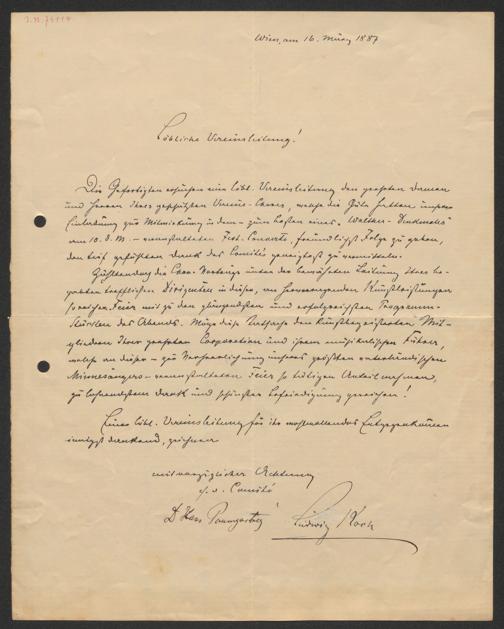 I.N. 74117
Wien, am 16. März 1887
Löbliche Vereinsleitung!
Die Gefertigten ersuchen eine löbl. Vereinsleitung den geehrten Damen
und Herren Ihres geschätzten Vereins-Chores, welche die Güte hatten unserer
Einladung zur Mitwirkung in dem - zum Besten eines "Walther-Denkmals"
am 10. d. M. - veranstalteten Fest-Concerte, freundlichst Folge zu geben,
den tief gefühlten Dank des Comités geneigtest zu vermitteln.
Zählten doch die Chor-Vorträge unter der bewährten Leitung Ihres
trefflichen Dirigenten in dieser, an hervorragenden Kunstleistungen
so reichen Feier mit zu den glänzendsten und erfolgreichsten Programm-
stücken des Abends. Möge diese Thatsache den kunstbegeisterten Mit-
gliedern Ihrer geehrten Corporation und ihrem musikalischen Führer,
welche an dieser - zur Verherrlichung unseres größten vaterländischen
Minnesängers - veranstalteten Feier so tätigen Antheil nahmen,
zu lohnendstem Dank und schönster Befriedigung gereichen!
Einer löbl. Vereinsleitung für ihr wohlwollendes Entgegenkommen
innigst dankend, zeichnen
mit vorzüglicher Achtung
f. d. Comité
Dr Hans Paumgartner Ludwig Koch